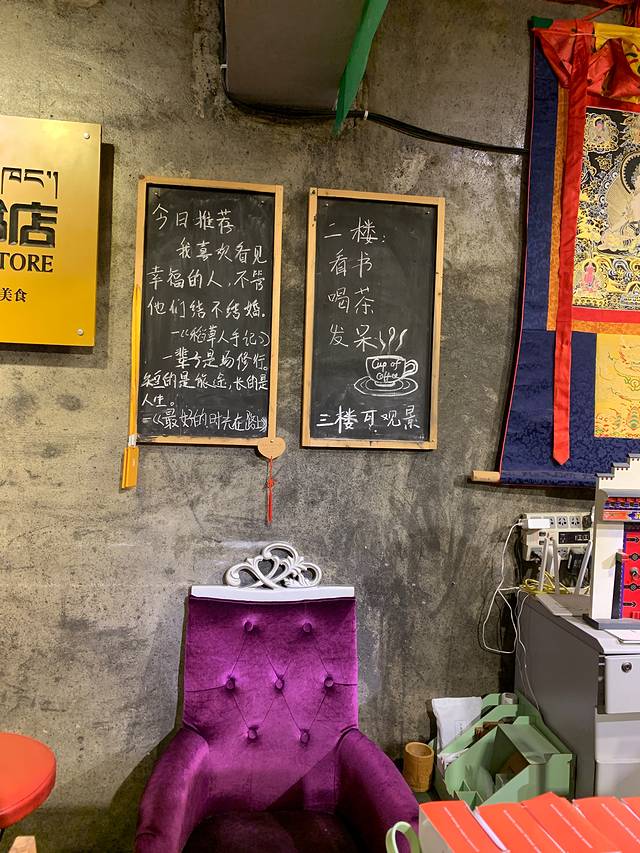 店
STORE
美食
今日推荐
我喜欢看见
幸福的人,不管
他们结不结婚.
—《稻草人手记》
一辈子是场修行。
短的是旅途,长的是
人生。
=《最好的时光在路上》
二楼:
看书
喝茶
发呆
Cup of
Coffee
三楼可观景